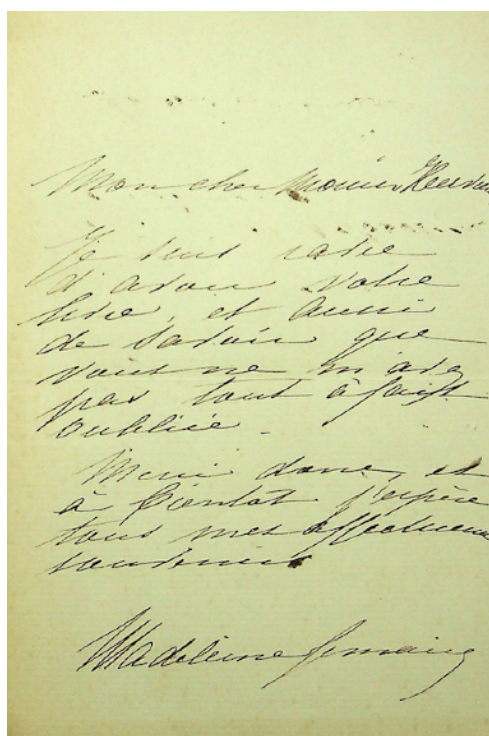 Mon cher Monsieur
Je suis ravie
d'avoir votre
livre, et aussi
de savoir que
vous ne m'avez
pas tout à fait
oubliée.
Merci donc, et
à bientôt j'espère
tous mes affectueux
souvenirs
Madeleine Lemaire